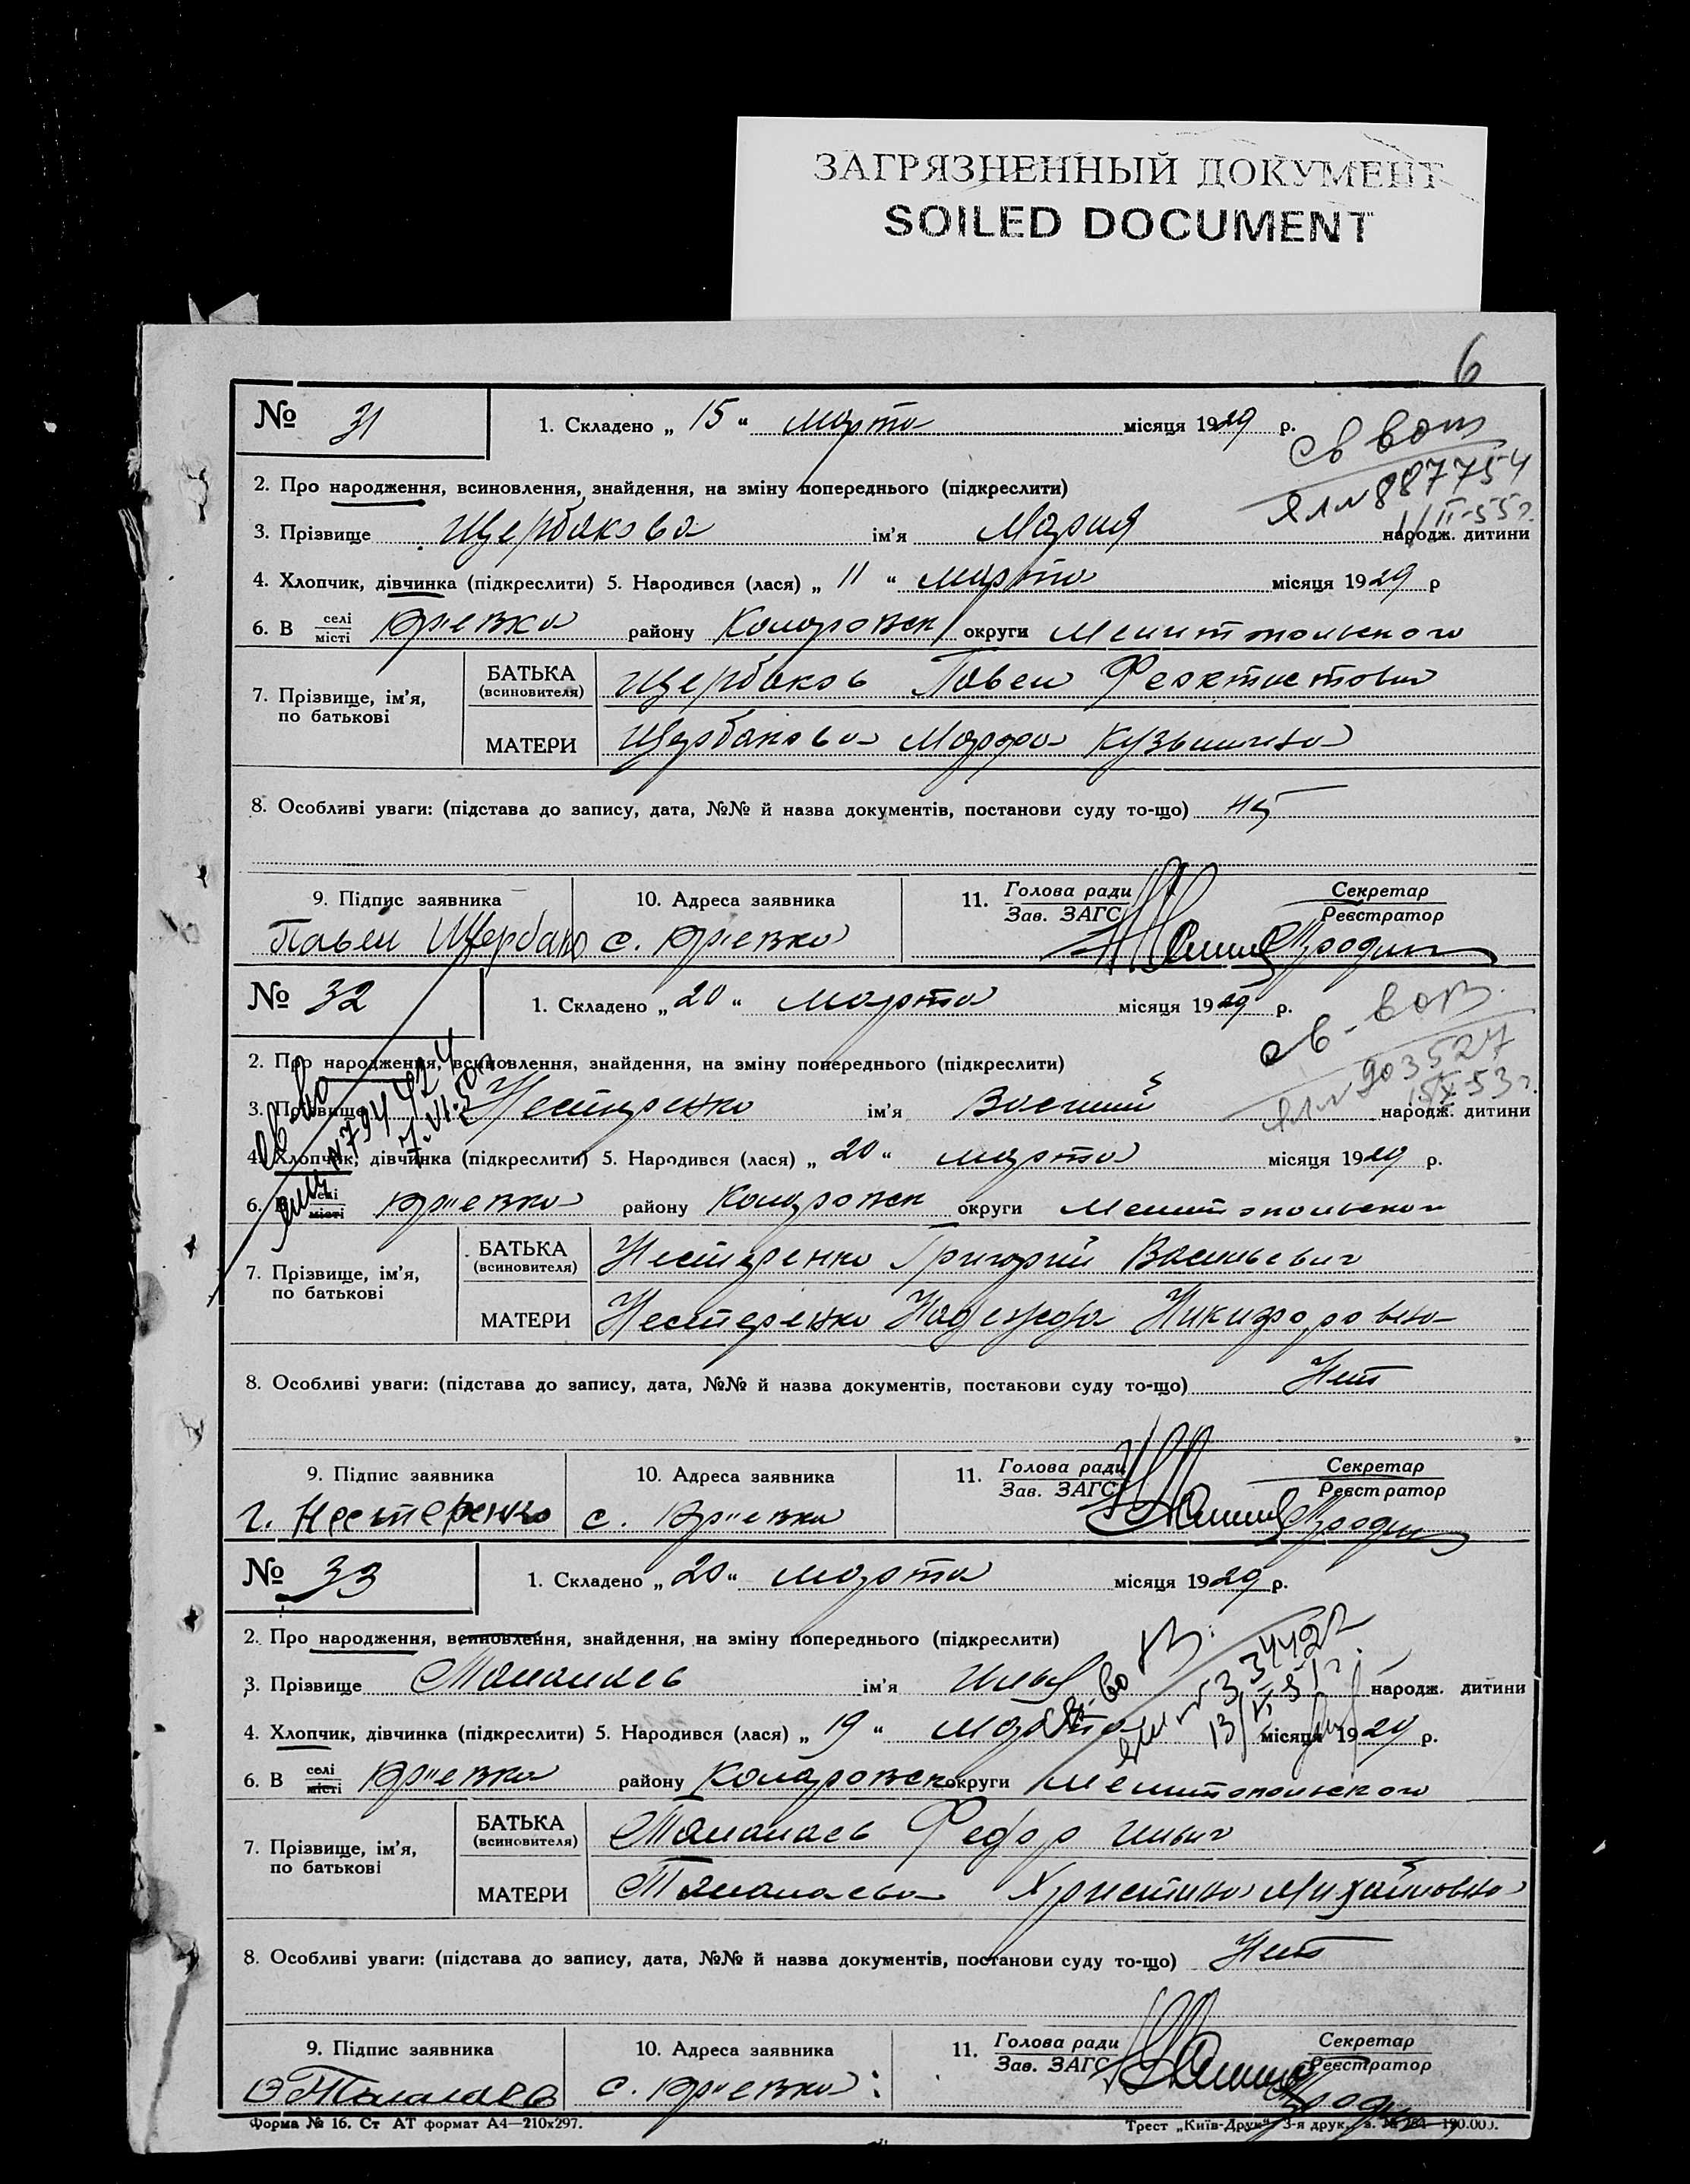 ЗАГРЯЗНЕННЫЙ ДОКУМЕНТ
SOILED DOCUMENT
6
№ 31
1. Складено „ 15 “ марта місяця 1929 р.
св вот
ЯЛ № 887754
2. Про народження, всиновлення, знайдення, на зміну попереднього (підкреслити)
11/II-55г.
3. Прізвище Щербакова ім’я Мария народж. дитини
4. Хлопчик, дівчинка (підкреслити) 5. Народився (лася) „ 11 “ марта місяця 1929 р
6. В селі/місті Юрьевка району Комаровск округи Мелитопольского
7. Прізвище, ім’я, по батькові
БАТЬКА (всиновителя) Щербаков Павел Феоктистович
МАТЕРИ Щербакова Марфа Кузьминична
8. Особливі уваги: (підстава до запису, дата, №№ й назва документів, постанови суду то-що)
9. Підпис заявника 10. Адреса заявника 11. Голова ради/Зав. ЗАГС Секретар/Реєстратор
Павел Щербако с. Юрьевка
№ 32
1. Складено „ 20 “ марта місяця 1929 р.
св-во
ЯЛ № 903527
2. Про народження, всиновлення, знайдення, на зміну попереднього (підкреслити)
3. Прізвище Нестеренко ім’я Василий народж. дитини
св-во
№ 794424
7.VI-50г.
4. Хлопчик, дівчинка (підкреслити) 5. Народився (лася) „ 20 “ марта місяця 1929 р.
6. В селі/місті Юрьевка району Комаровск округи Мелитопольского
7. Прізвище, ім’я, по батькові
БАТЬКА (всиновителя) Нестеренко Григорий Васильевич
МАТЕРИ Нестеренко Надежда Никифоровна
8. Особливі уваги: (підстава до запису, дата, №№ й назва документів, постанови суду то-що) Нет
9. Підпис заявника 10. Адреса заявника 11. Голова ради/Зав. ЗАГС Секретар/Реєстратор
Г. Нестеренко с. Юрьевка
№ 33
1. Складено „ 20 “ марта місяця 1929 р.
2. Про народження, всиновлення, знайдення, на зміну попереднього (підкреслити)
3. Прізвище Тамалаев ім’я Илья народж. дитини
св-во
4. Хлопчик, дівчинка (підкреслити) 5. Народився (лася) „ 19 “ Марта місяця 1929 р.
6. В селі/місті Юрьевка району Комаровск округи Мелитопольского
7. Прізвище, ім’я, по батькові
БАТЬКА (всиновителя) Тамалаев Федор Ильич
МАТЕРИ Тамалаева Христина Михайловна
8. Особливі уваги: (підстава до запису, дата, №№ й назва документів, постанови суду то-що) Нет
9. Підпис заявника 10. Адреса заявника 11. Голова ради/Зав. ЗАГС Секретар/Реєстратор
с. Юрьевка
Форма № 16. Ст АТ формат А4—210х297.
Трест „Київ-Друк“ 3-я друк.